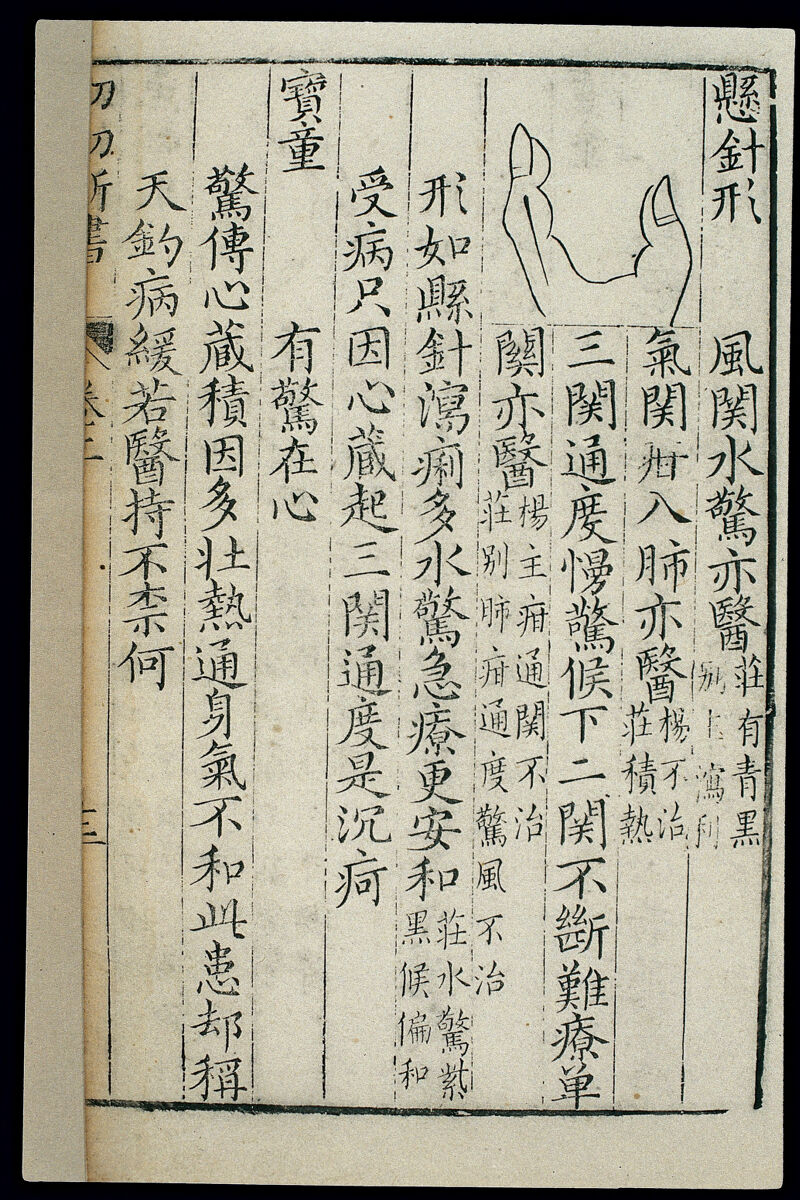 懸針形
風関水驚亦醫莊有青黑
別上瀉利
氣関疳入肺亦醫楊不治
莊積熱
三関通度慢驚候下二関不斷難療単
関亦醫楊主疳通関不治
莊別肺疳通度驚風不治
形如懸針瀉痢多水驚急療更安和莊水驚紫
黑候偏和
受病只因心蔵起三関通度是沉疴
寶童
有驚在心
驚傳心蔵積因多壮熱通身氣不和此患却稱
天釣病緩若醫持不柰何
卷二
三